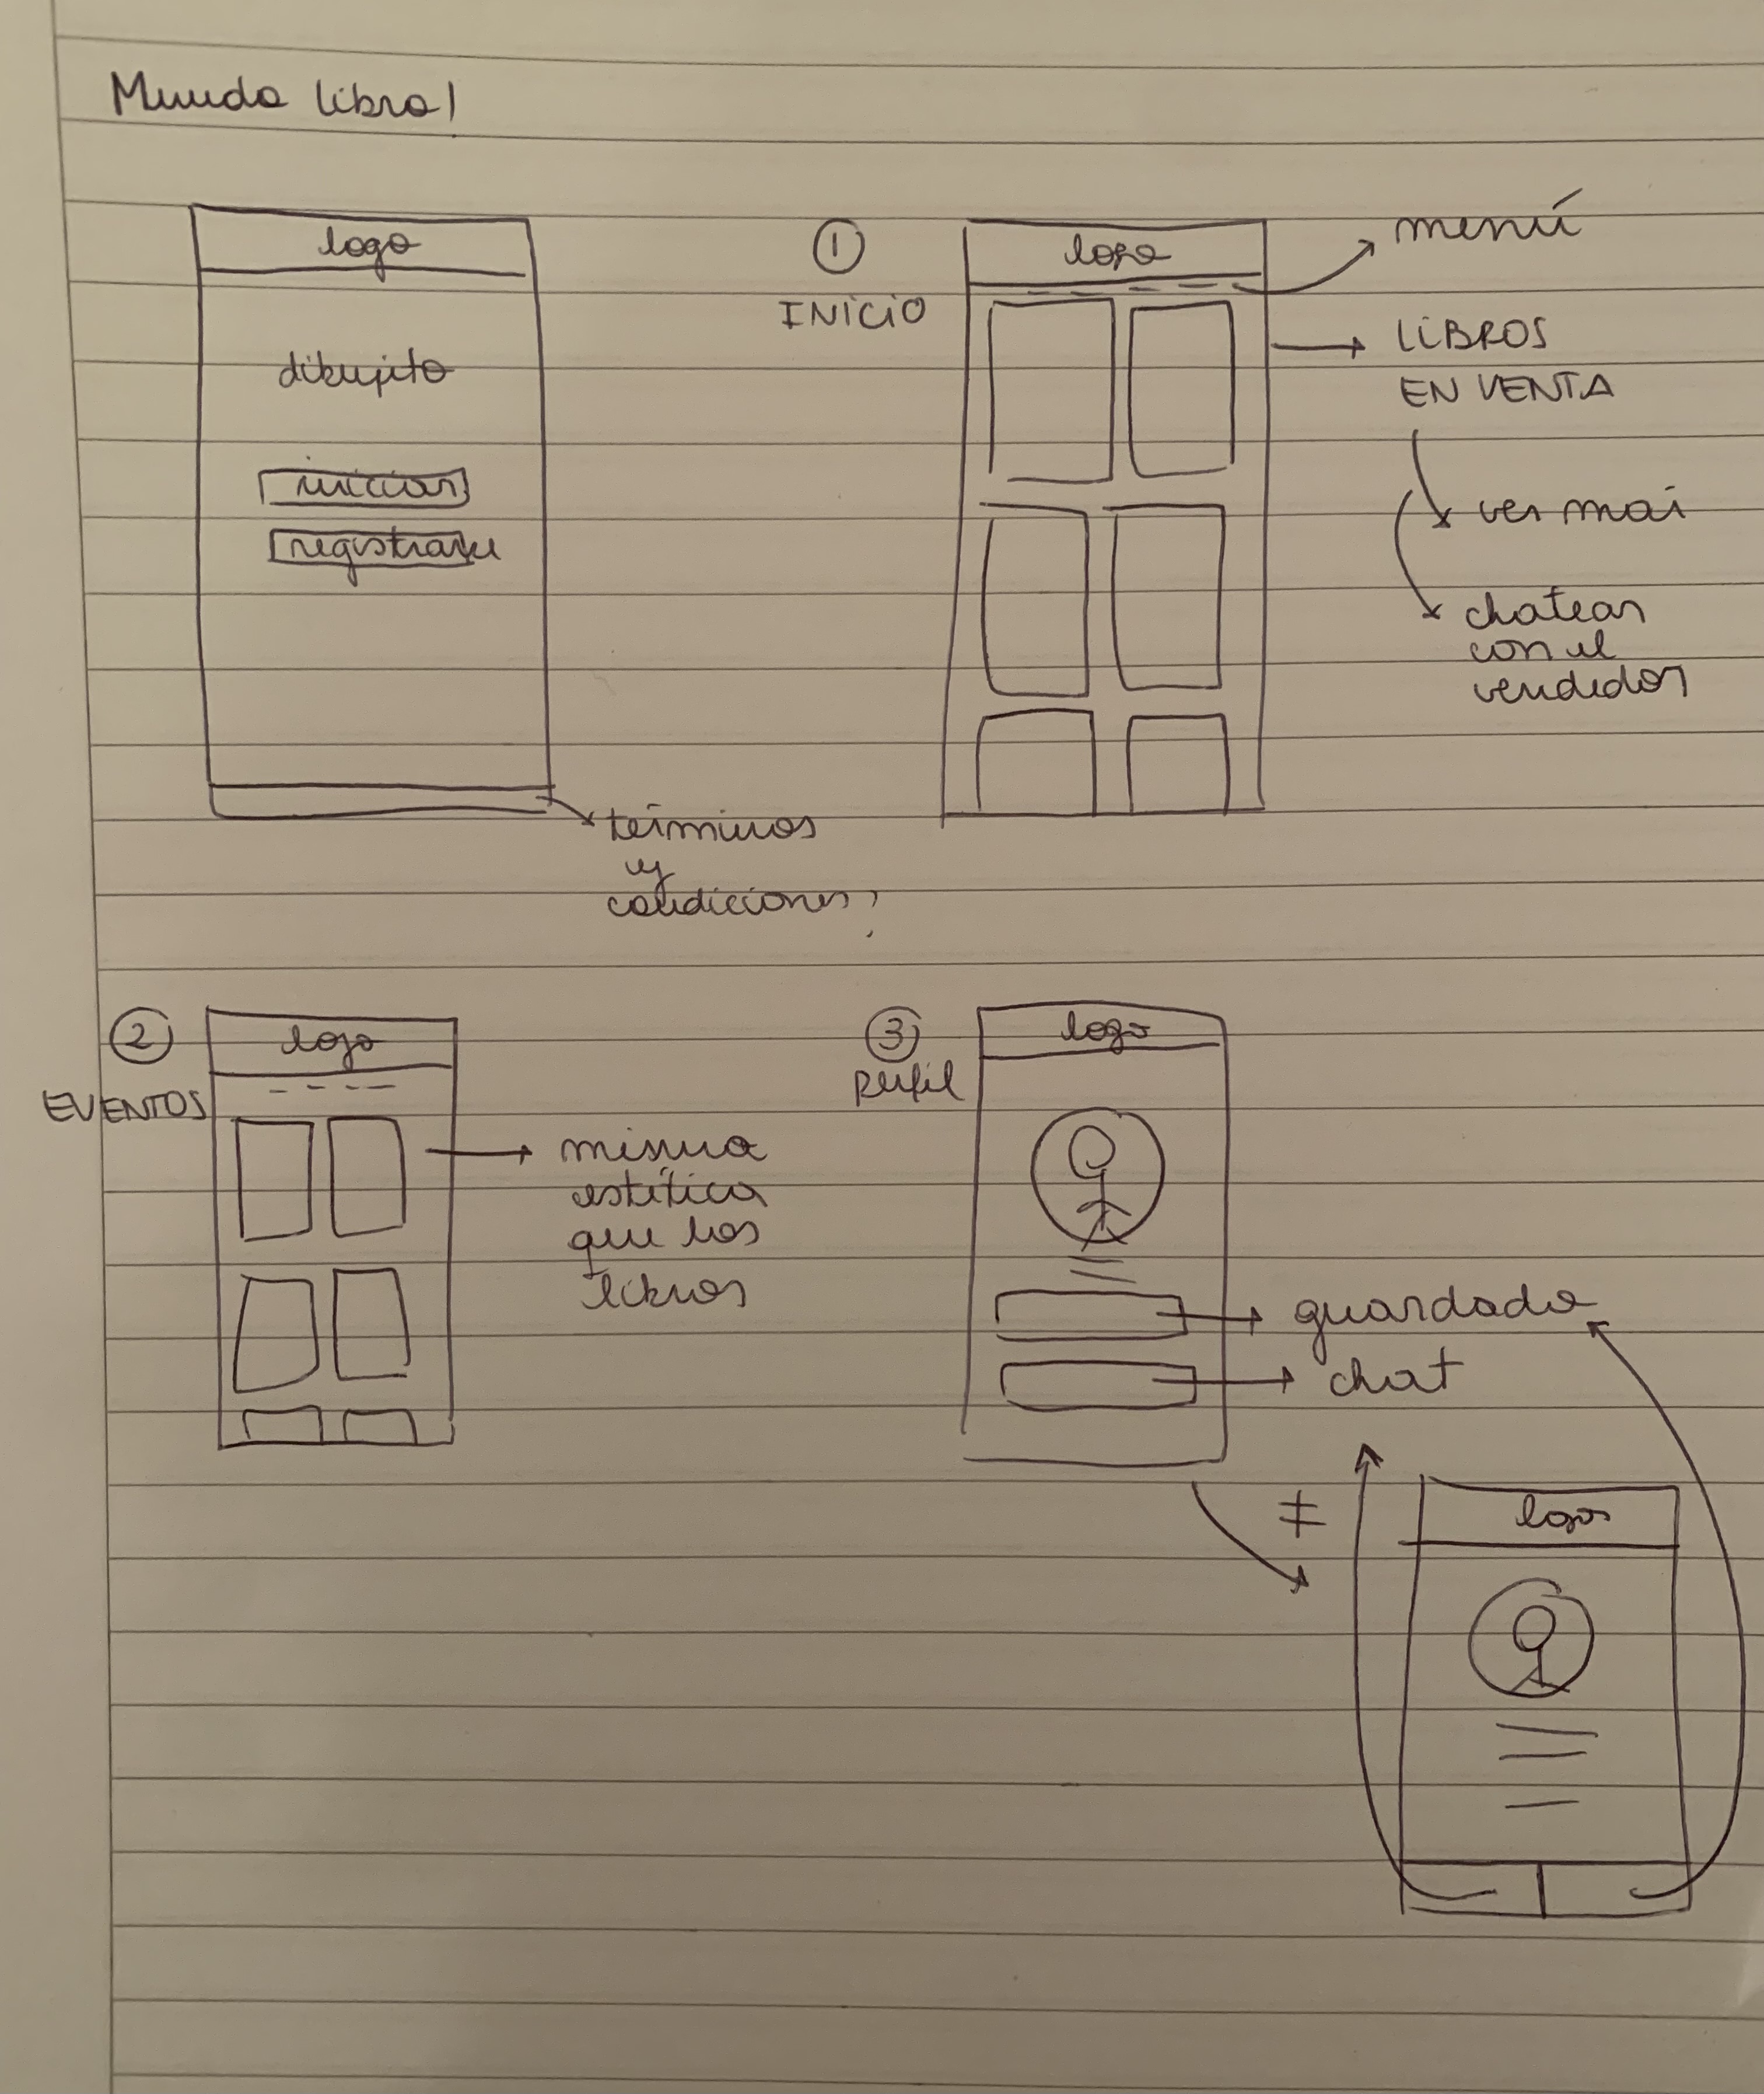 Mundo libro!
logo
dibujito
iniciar
registrarse
términos
y
condiciones
1
INICIO
logo
menú
LIBROS
EN VENTA
ver mas
chatear
con el
vendedor
2
EVENTOS
logo
misma
estética
que los
libros
3
perfil
logo
guardado
chat
≠
logo